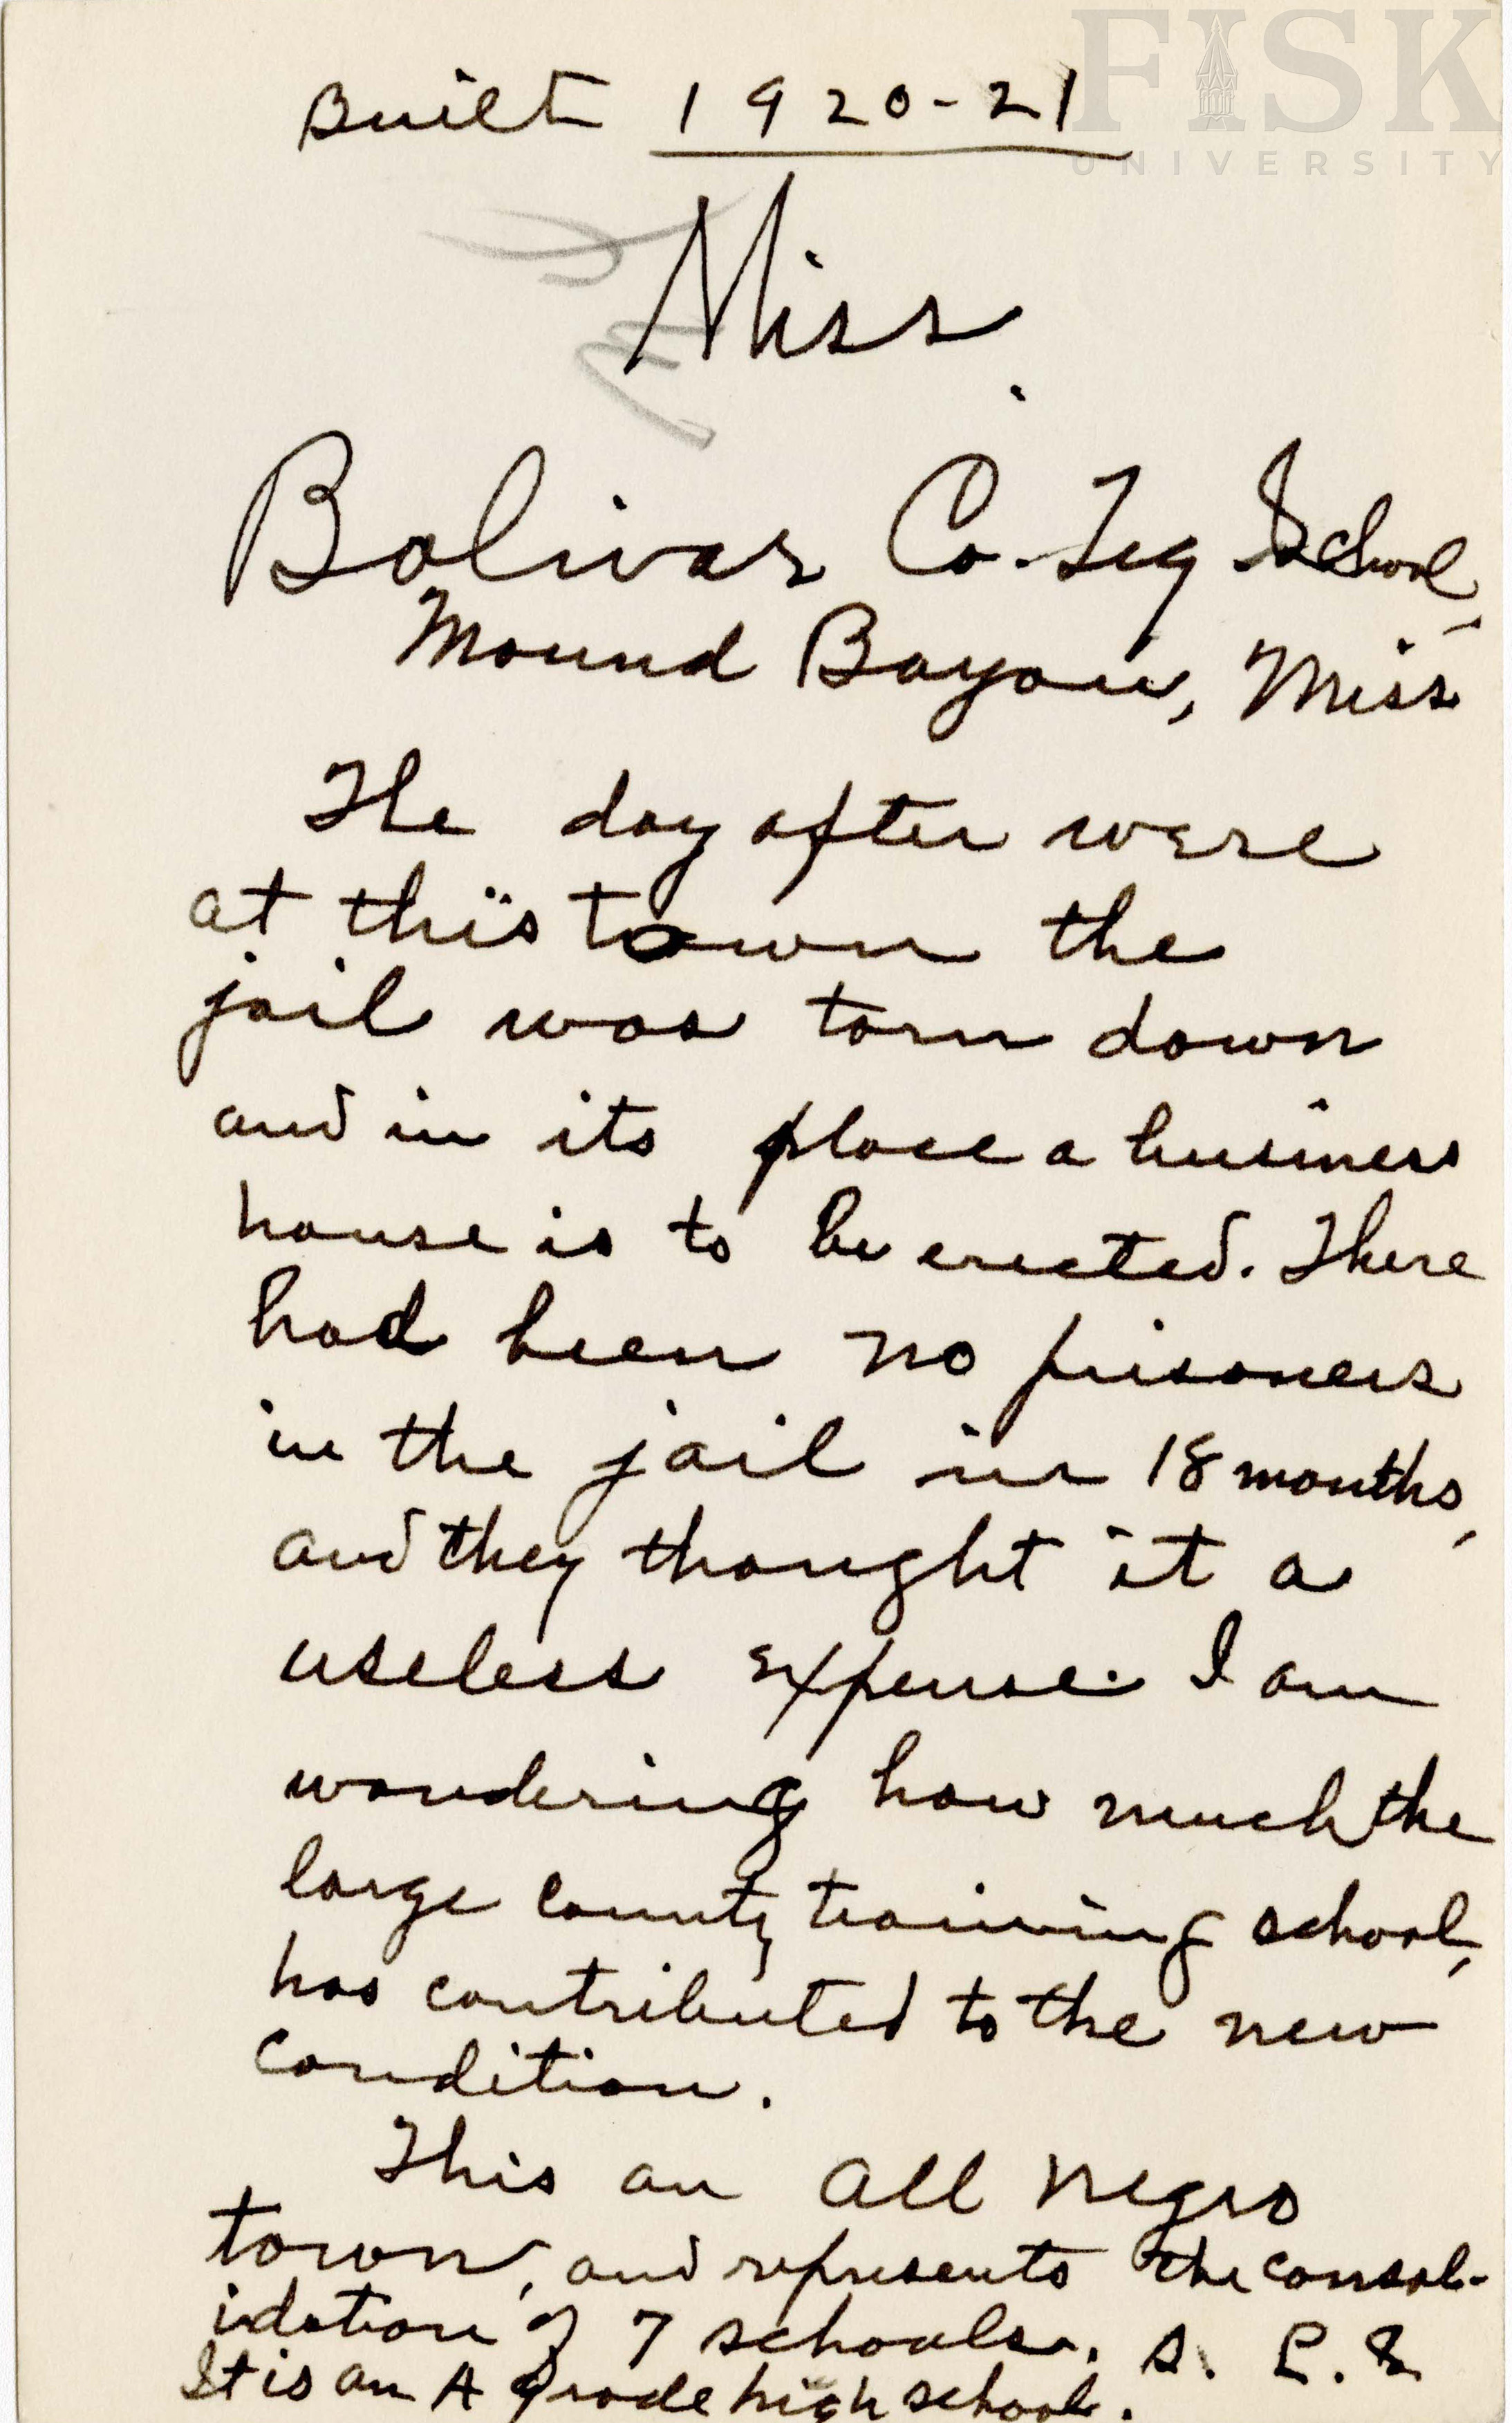 FISK
UNIVERSITY
Built 1920-21
Miss.
Bolivar Co. Trg School,
Mound Bayou, Miss
The day after were
at this town the
jail was torn down
and in its place a business
house is to be erected. There
had been no prisoners
in the jail in 18 months,
and they thought it a
useless expense. I am
wondering how much the
large county training school,
has contributed to the new
condition.
This an all negro
town, and represents the consol-
idation of 7 schools. S. L. S.
It is an A grade high school.